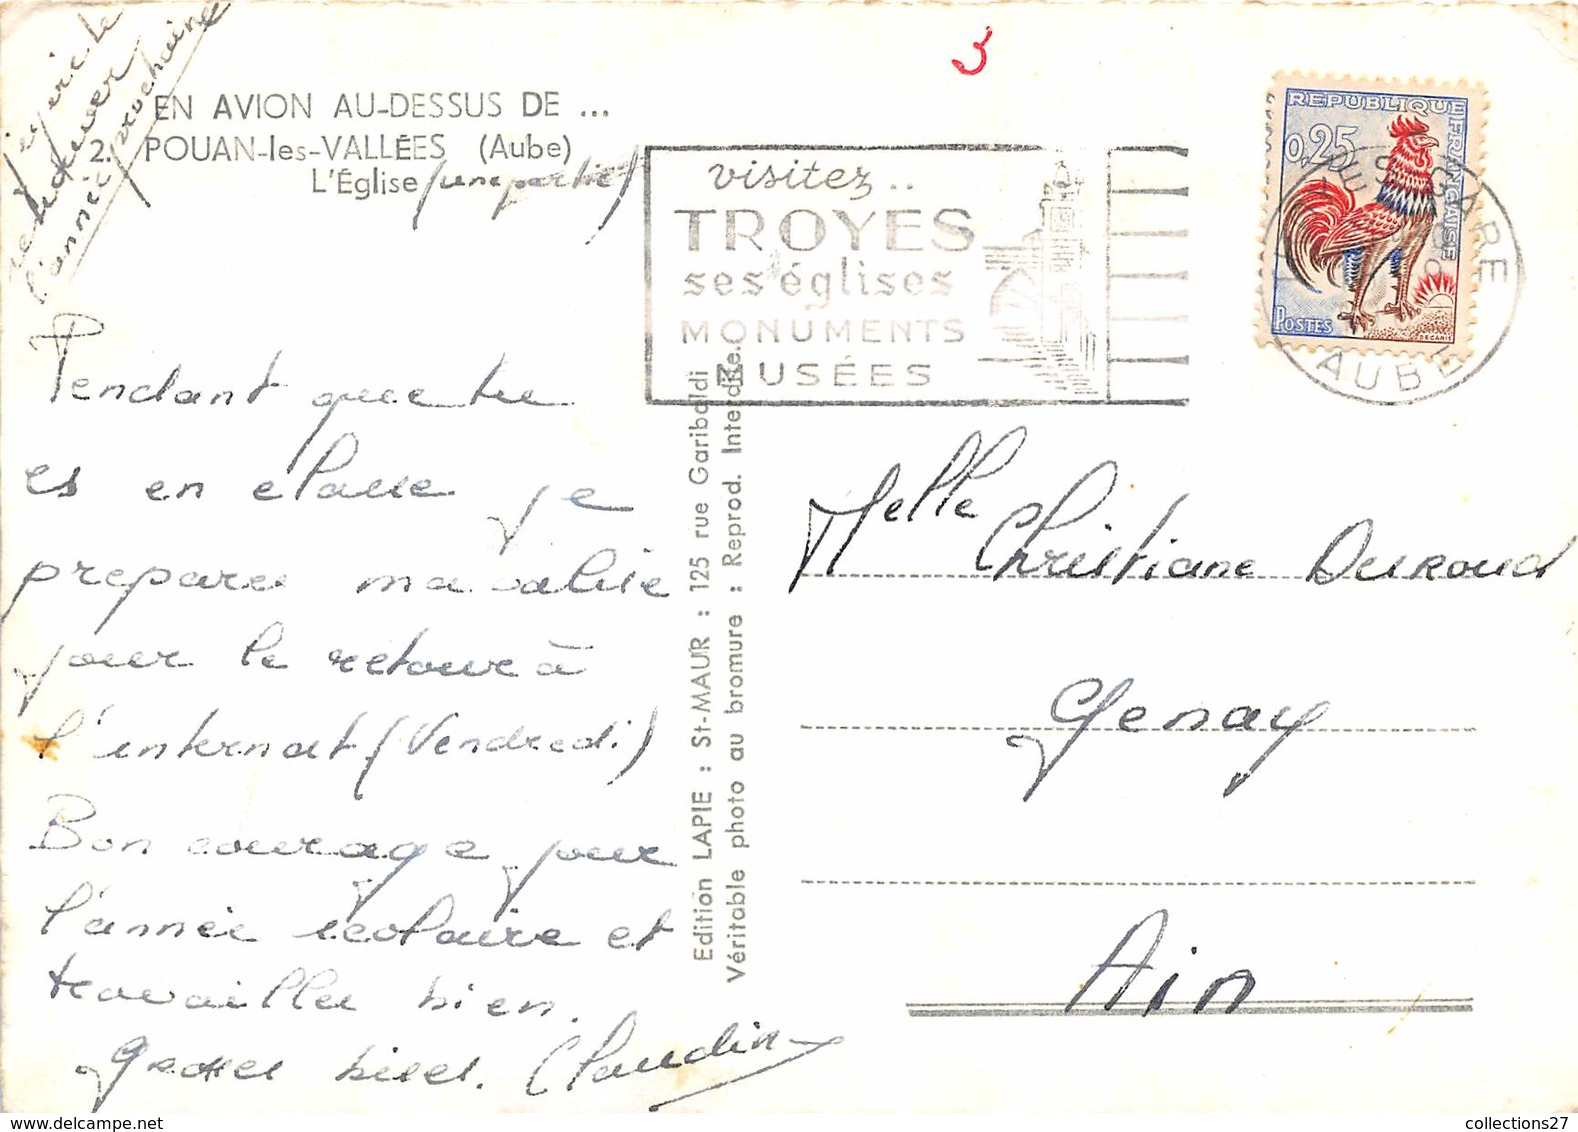 J'espère te
retrouver
l'année prochaine
3
EN AVION AU-DESSUS DE ...
2. POUAN-les-VALLÉES (Aube)
L'Église (une partie)
visitez..
TROYES
ses églises
MONUMENTS
MUSÉES
REPUBLIQUE FRANÇAISE
0,25
POSTES
DECARIS
TROYES GARE
AUBE
Pendant que tu
es en classe je
prepare ma valise
pour le retour à
l'internat (Vendredi)
Bon courage pour
l'année scolaire et
travailles bien.
Grosses bises. Claudine
Edition LAPIE : St-MAUR : 125 rue Garibaldi
Véritable photo au bromure : Reprod. Interdite.
Melle Christiane Duroud
Genay
Ain
collections27